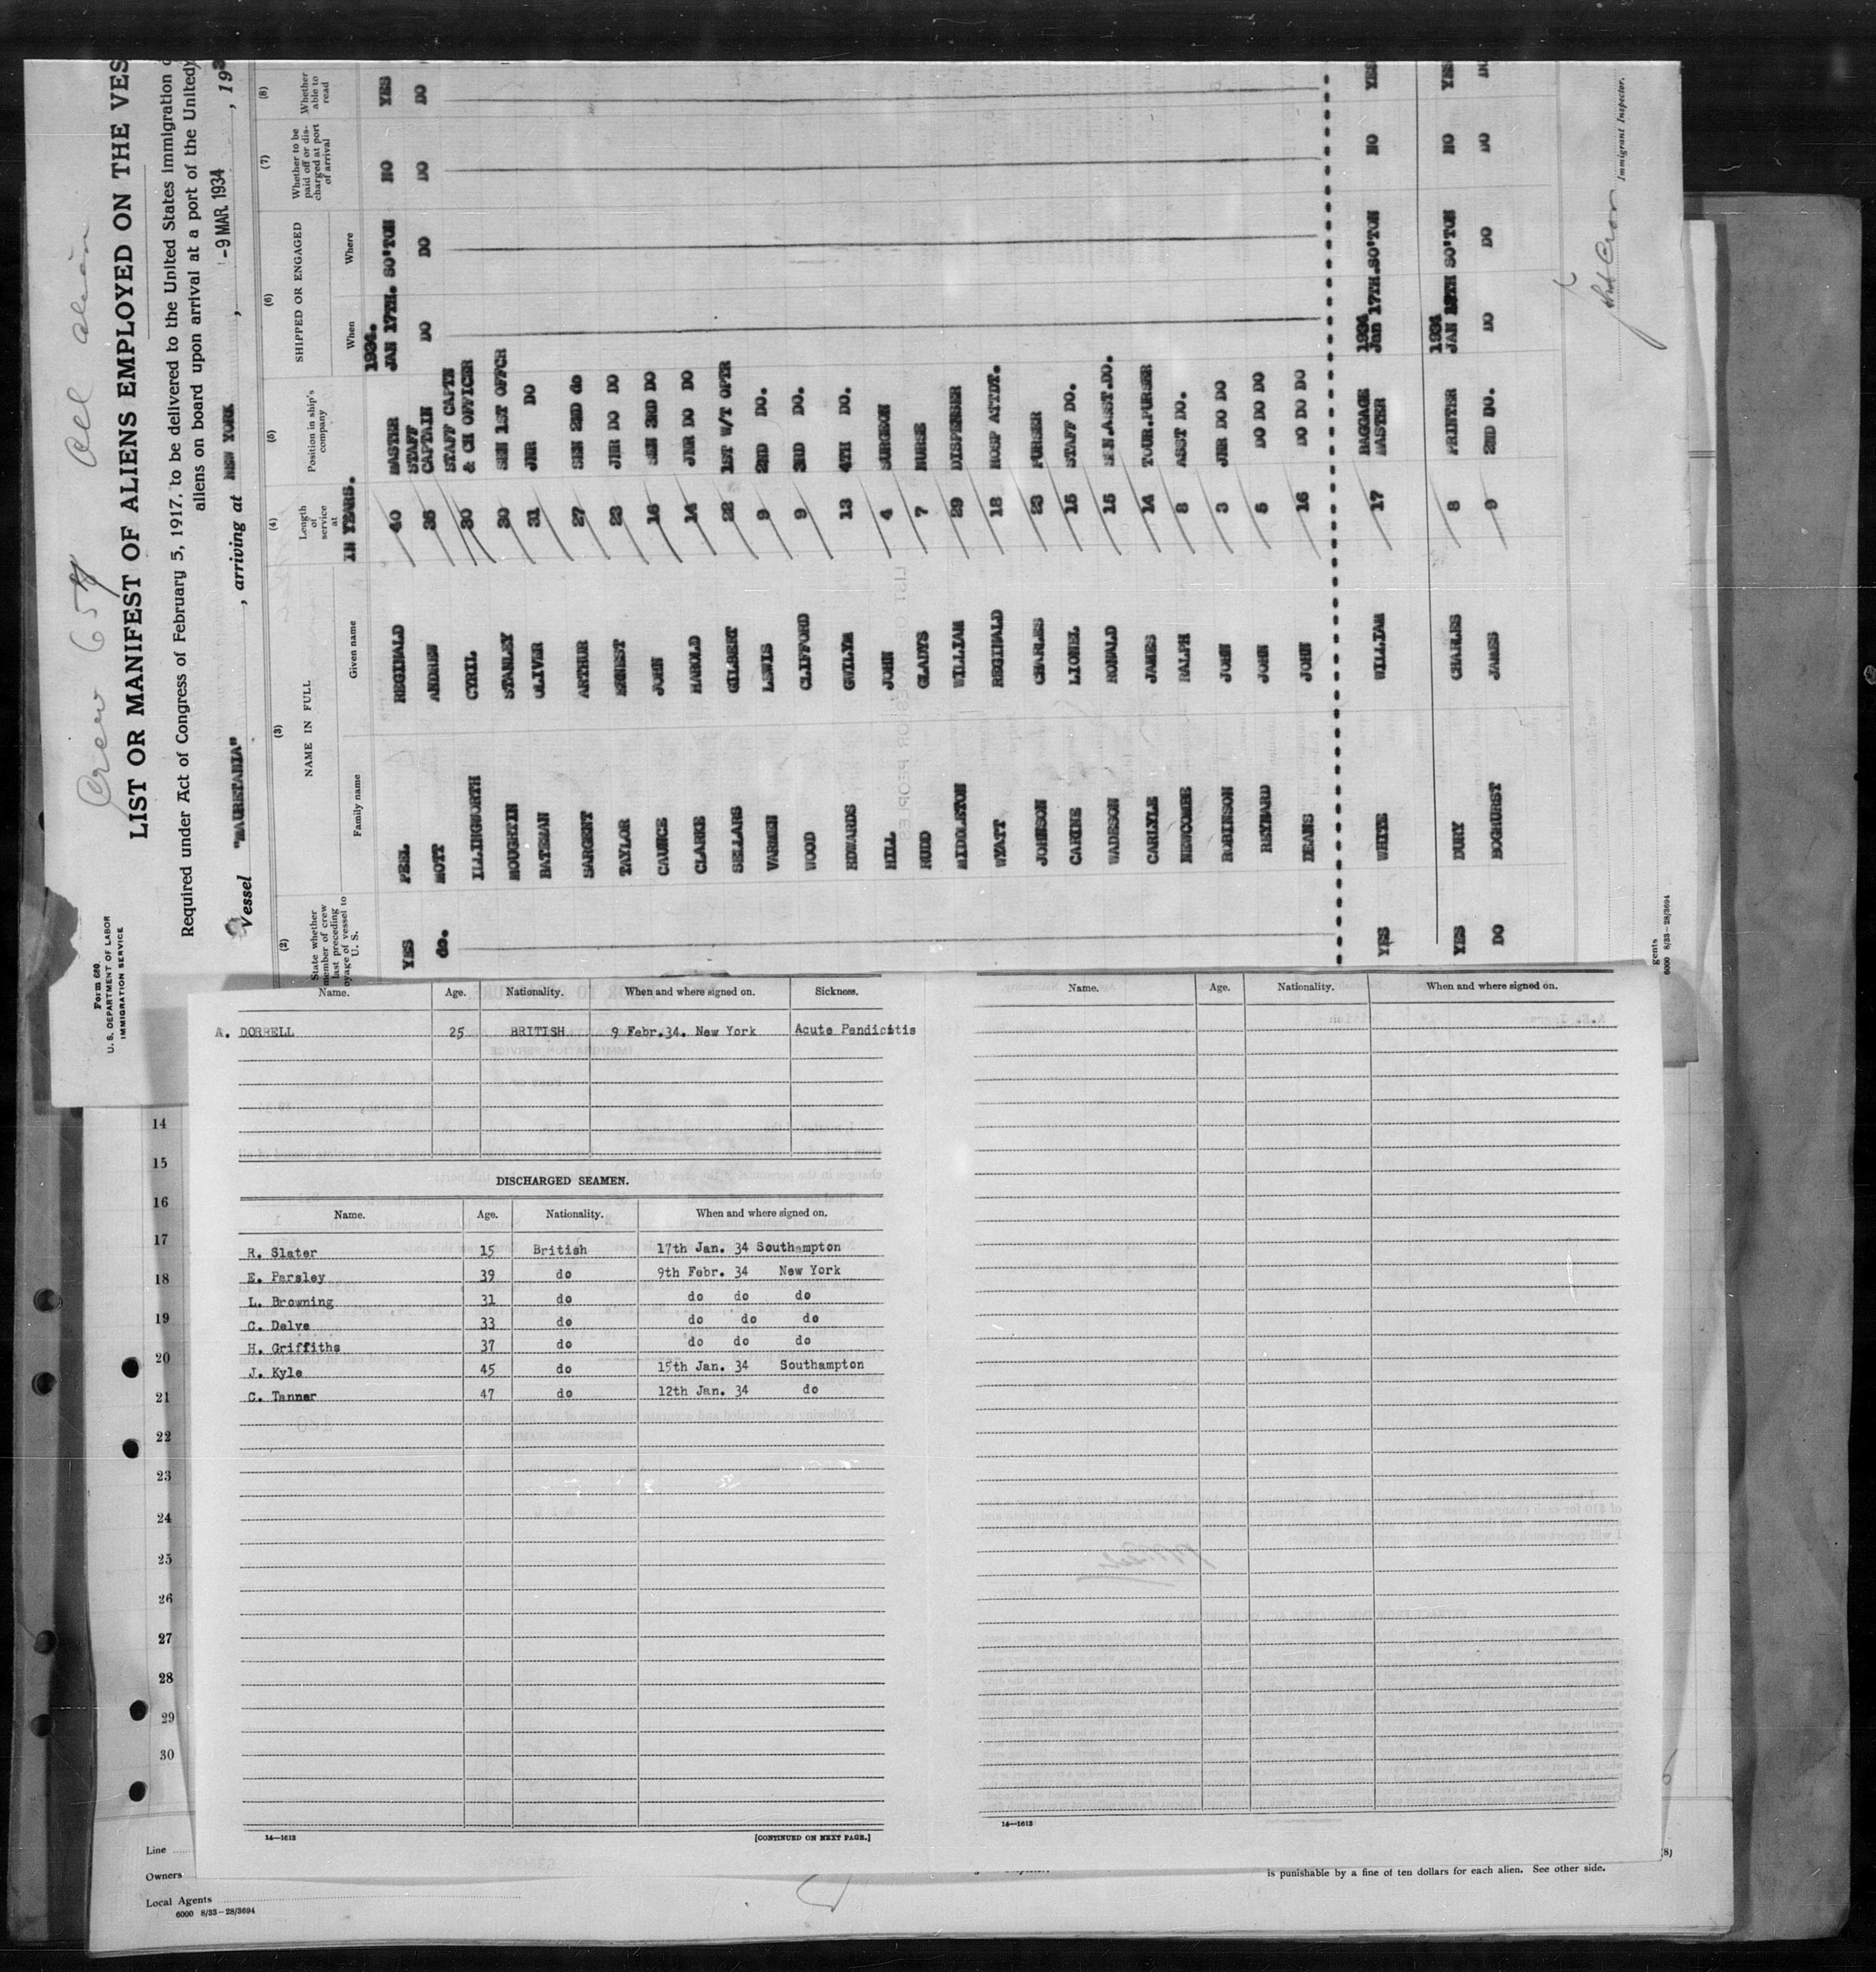 Crew 657 All alien
Form 680
U. S. DEPARTMENT OF LABOR
IMMIGRATION SERVICE
LIST OR MANIFEST OF ALIENS EMPLOYED ON THE VES
Required under Act of Congress of February 5, 1917, to be delivered to the United States immigration
aliens on board upon arrival at a port of the United
Vessel "MAURETANIA", arriving at NEW YORK, -9 MAR. 1934, 193
(2) (3) (4) (5) (6) (7) (8)
State whether member of crew last preceding voyage of vessel to U. S. NAME IN FULL Family name Given name Length of service at IN YEARS. Position in ship's company SHIPPED OR ENGAGED When Where Whether to be paid off or discharged at port of arrival Whether able to read
YES PEEL REGINALD 40 MASTER 1934. JAN 17TH. SO'TON NO YES
do. MOTT ANDREW 35 STAFF CAPTAIN DO DO DO DO
ILLINGWORTH CYRIL 30 STAFF CAPTN & CH OFFICER
MOUGHTIN STANLEY 30 SEN 1ST OFFCR
BATEMAN OLIVER 31 JNR DO
SARGENT ARTHUR 27 SEN 2ND do
TAYLOR ERNEST 23 JNR DO DO
CAUNCE JOHN 16 SEN 3RD DO
CLARKE HAROLD 14 JNR DO DO
SELLARS GILBERT 22 1ST W/T OPTR
VARMEN LEWIS 9 2ND DO.
WOOD CLIFFORD 9 3RD DO.
EDWARDS GWILYM 13 4TH DO.
HILL JOHN 4 SURGEON
RUDD GLADYS 7 NURSE
MIDDLETON WILLIAM 29 DISPENSER
WYATT REGINALD 18 HOSP ATTDT.
JOHNSON CHARLES 23 PURSER
CARINE LIONEL 15 STAFF DO.
WADESON RONALD 15 SEN.ASST.DO.
CARLYLE JAMES 14 TOUR.PURSER
NEWCOMBE RALPH 8 ASST DO.
ROBINSON JOHN 3 JNR DO DO
REYNARD JOHN 5 DO DO DO
DEANS JOHN 16 DO DO DO
YES WHITE WILLIAM 17 BAGGAGE MASTER 1934 Jan 17TH.SO'TON NO YES
YES DURY CHARLES 8 PRINTER 1934 JAN SO'TON NO YES
DO BOGHURST JAMES 9 2ND DO. DO DO DO DO
Immigrant Inspector.
gents
6000 8/33-28/3694
Name. Age. Nationality. When and where signed on. Sickness.
A. DORRELL 25 BRITISH 9 Febr.34. New York Acute Pendicitis
DISCHARGED SEAMEN.
Name. Age. Nationality. When and where signed on.
R. Slater 15 British 17th Jan. 34 Southampton
E. Parsley 39 do 9th Febr. 34 New York
L. Browning 31 do do do do
C. Delve 33 do do do do
H. Griffiths 37 do do do do
J. Kyle 45 do 15th Jan. 34 Southampton
C. Tanner 47 do 12th Jan. 34 do
14—1613
[CONTINUED ON NEXT PAGE.]
Name. Age. Nationality. When and where signed on.
14—1613
14
15
16
17
18
19
20
21
22
23
24
25
26
27
28
29
30
Line
Owners
Local Agents
6000 8/33-28/3694
is punishable by a fine of ten dollars for each alien. See other side.
(8)